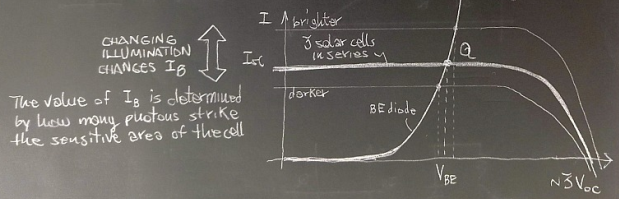 CHANGING
ILLUMINATION
CHANGES I_B
The value of I_B is determined
by how many photons strike
the sensitive area of the cell
I
brighter
3 solar cells
in series
I_SC
Q
darker
BE diode
V_BE
~3V_OC